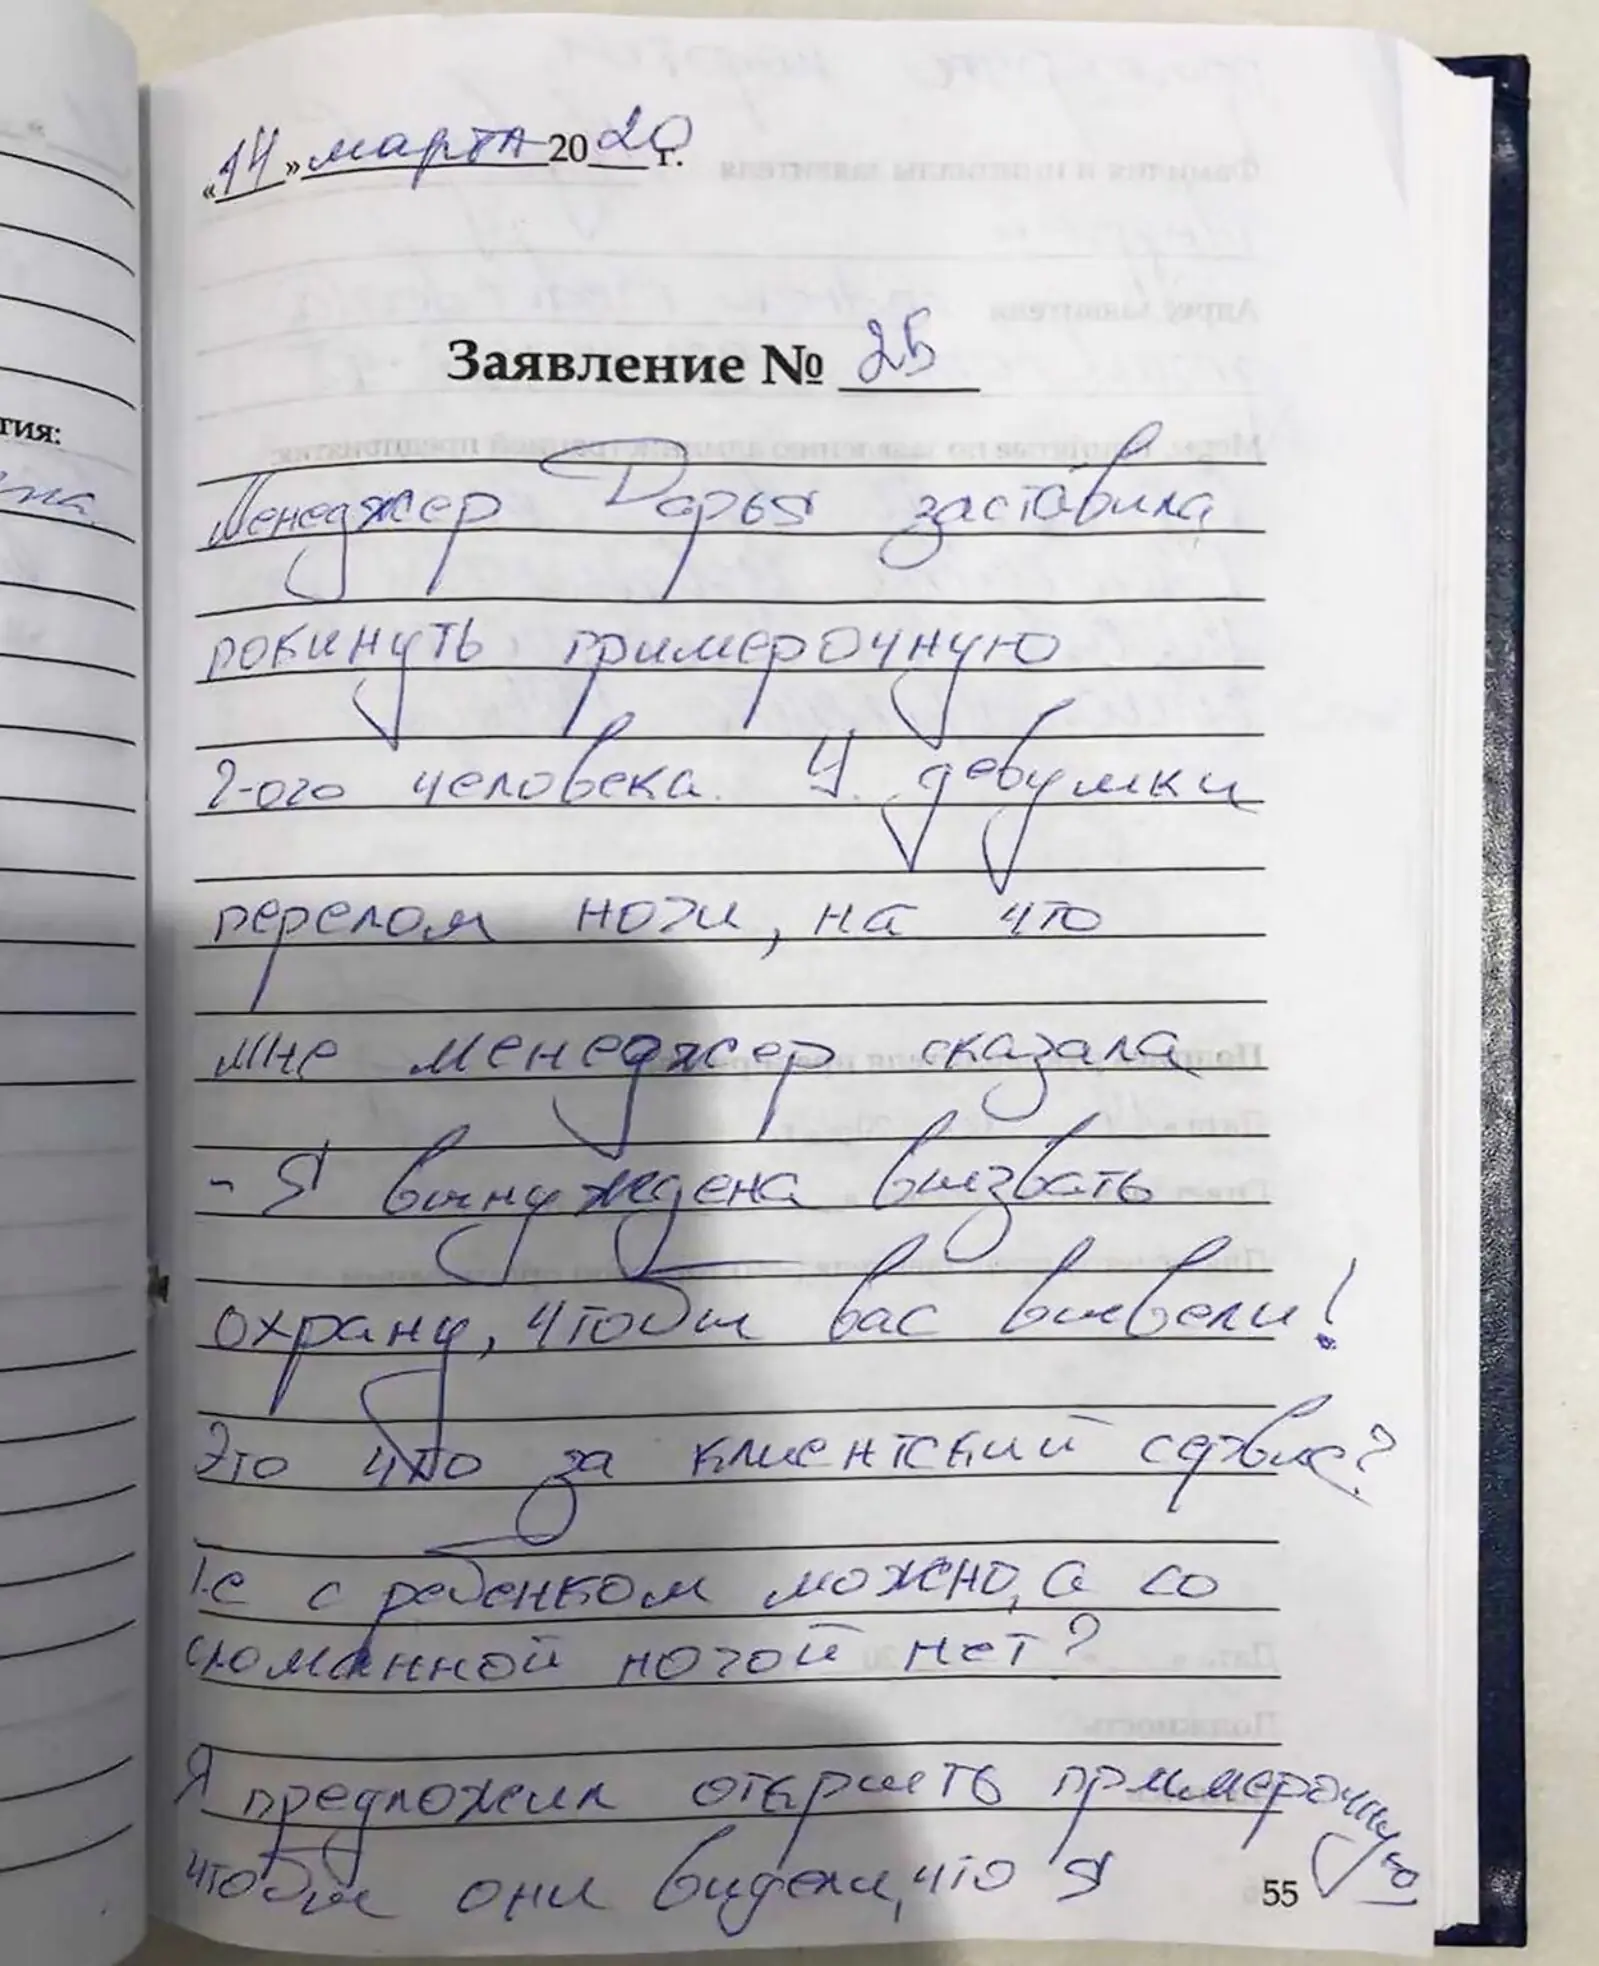 «14» марта 2020 г.
Заявление № 25
тия:
Менеджер Дарья заставила
покинуть примерочную
2-ого человека. У девушки
перелом ноги, на что
мне менеджер сказала
- Я вынуждена вызвать
охрану, чтобы вас вывели!
Это что за клиентский сервис?
т.е с ребенком можно, а со
сломанной ногой нет?
Я предложил открыть примерочную
чтобы они видели, что я
55